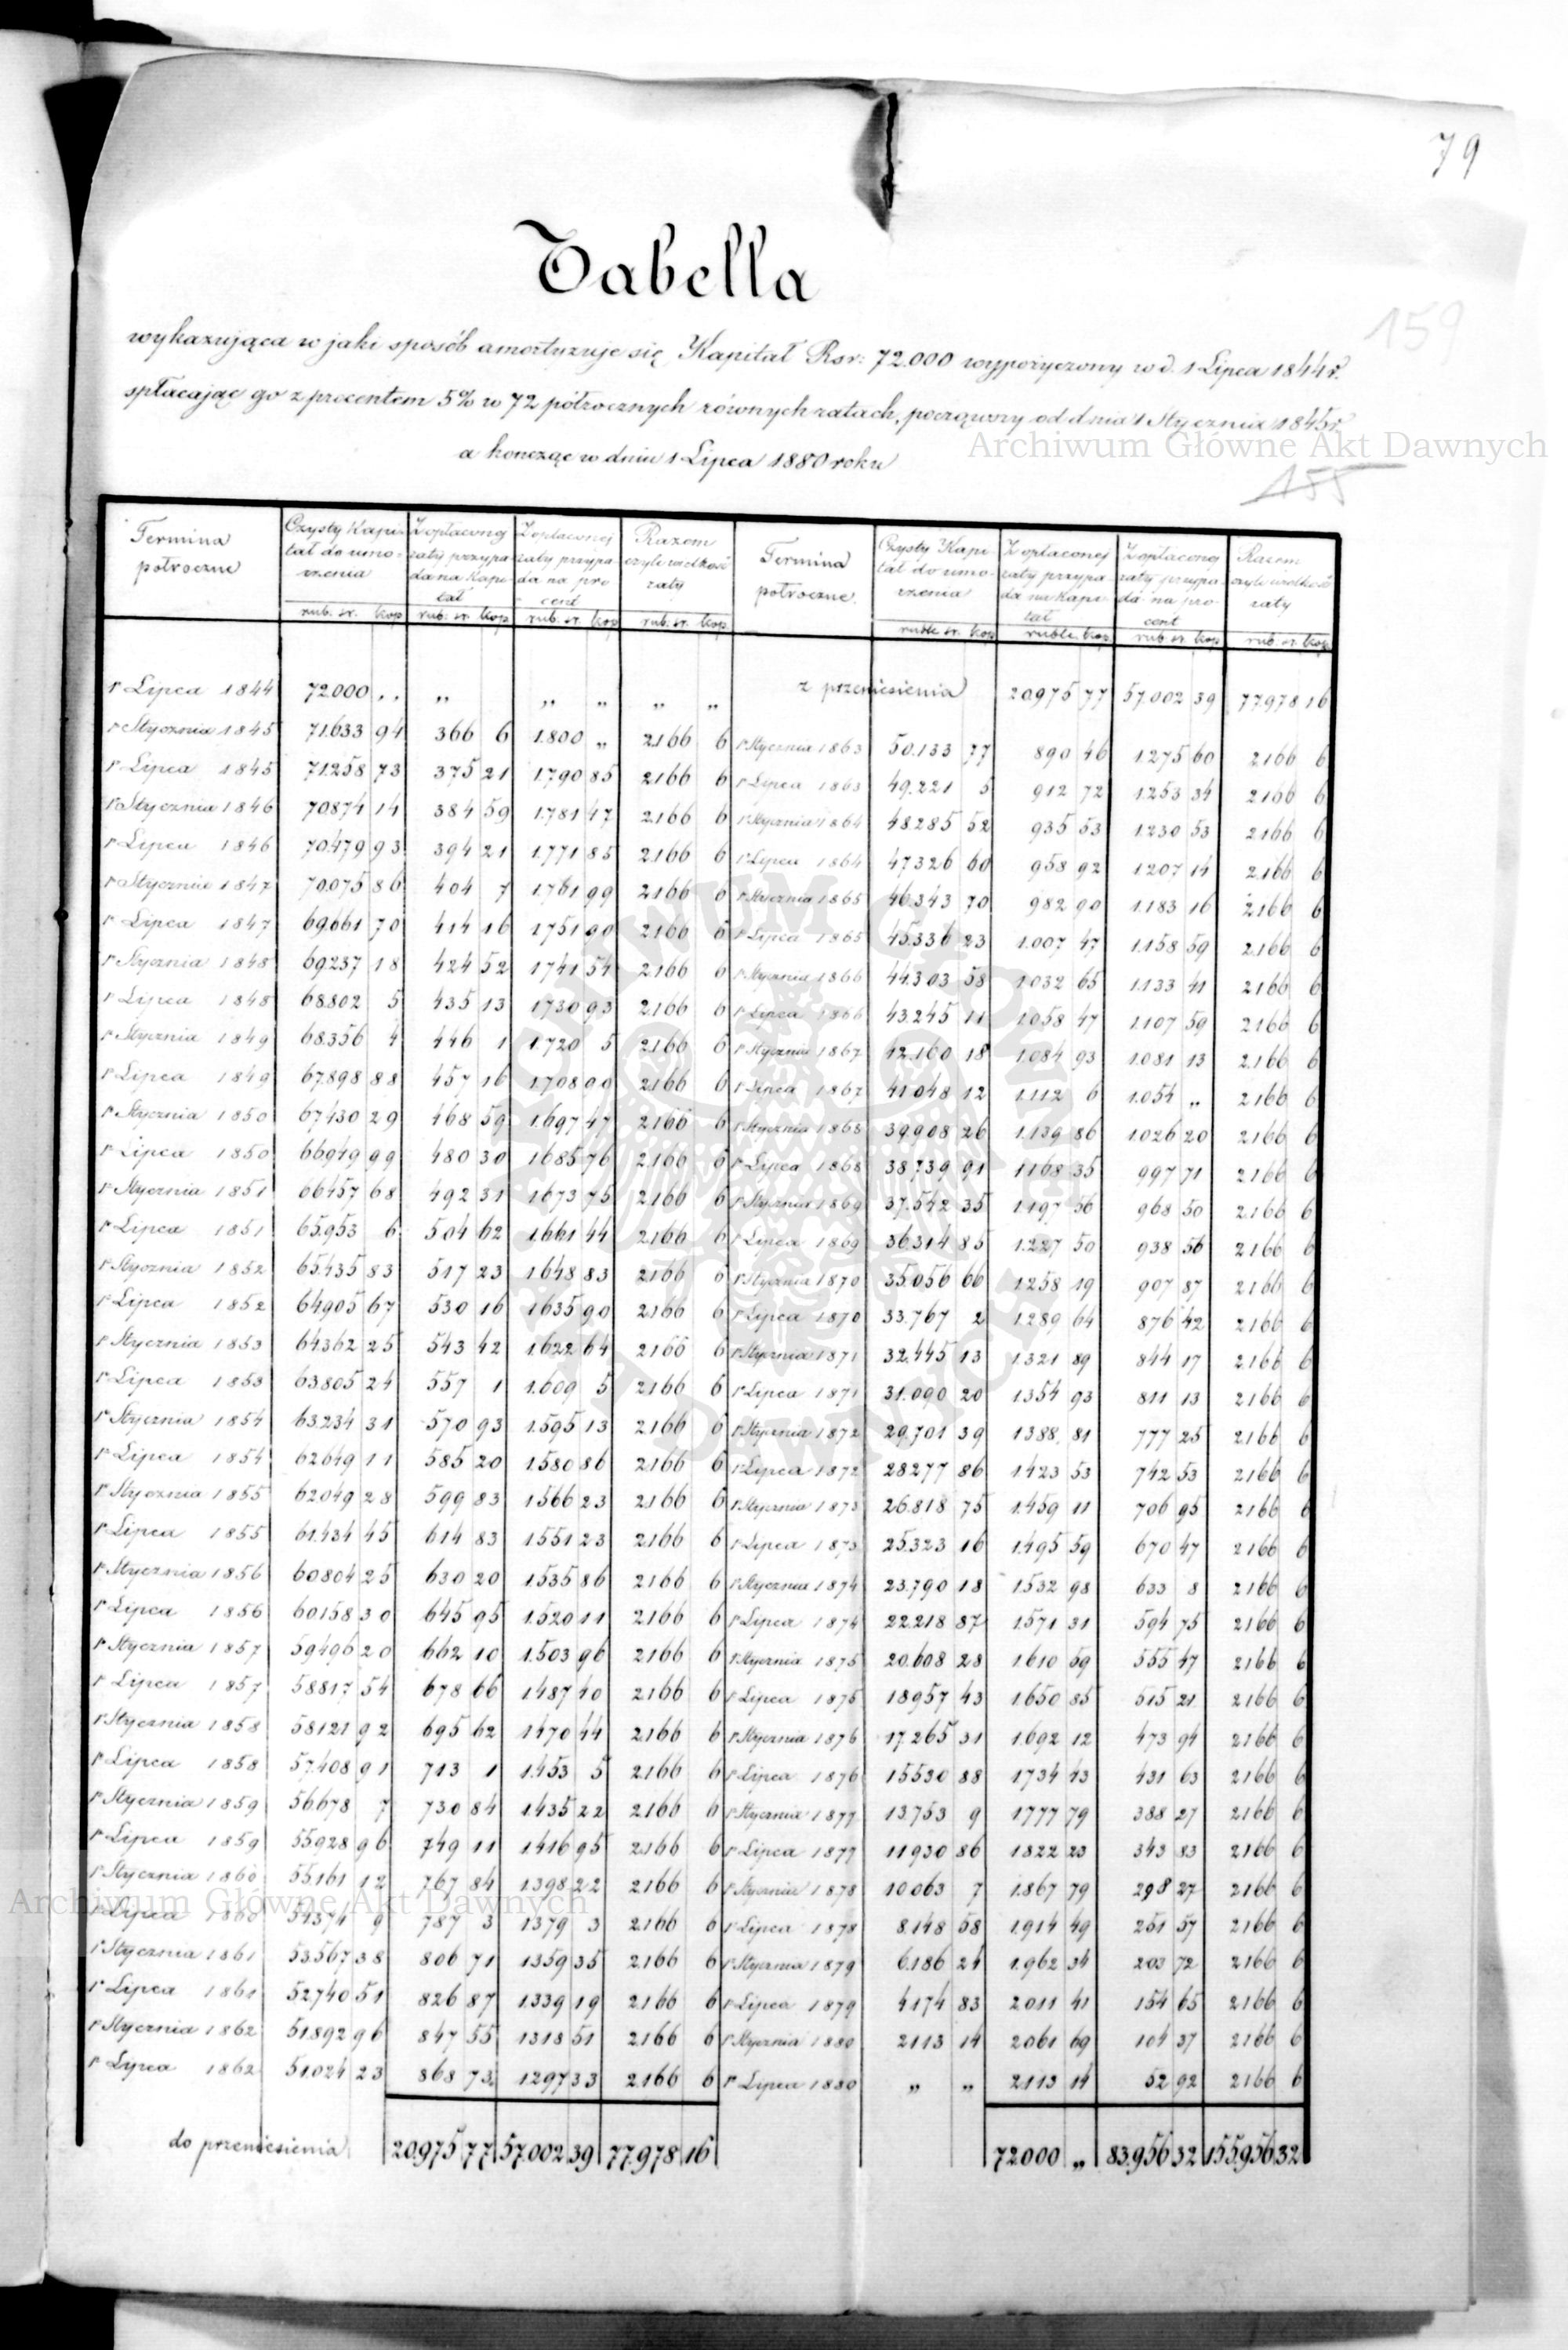 79
Tabella
159
wykazująca w jaki sposób amortyzuje się Kapitał Rsr: 72.000 wypożyczony w d. 1 Lipca 1844 r.
spłacając go z procentem 5% w 72 półrocznych równych ratach, począwszy od dnia 1 Stycznia 1845 r.
Archiwum Główne Akt Dawnych
a kończąc w dniu 1 Lipca 1880 roku
155
Termina półroczne | Czysty Kapitał do umorzenia rub. sr. kop | Z opłaconej raty przypada na Kapitał rub. sr. kop | Z opłaconej raty przypada na procent rub. sr. kop | Razem czyli wielkość raty rub. sr. kop | Termina półroczne | Czysty Kapitał do umorzenia ruble sr. kop | Z opłaconej raty przypada na Kapitał ruble kop | Z opłaconej raty przypada na procent rub sr kop | Razem czyli wielkość raty rub. sr. kop
1 Lipca 1844 72.000 „ „ „ „ „ „ z przeniesienia 20975 77 57.002 39 77.978 16
1 Stycznia 1845 71.633 94 366 6 1.800 „ 2.166 6 1 Stycznia 1863 50.133 77 890 46 1.275 60 2166 6
1 Lipca 1845 71.258 73 375 21 1.790 85 2.166 6 1 Lipca 1863 49.221 5 912 72 1.253 34 2166 6
1 Stycznia 1846 70874 14 384 59 1.781 47 2.166 6 1 Stycznia 1864 48.285 52 935 53 1.230 53 2166 6
1 Lipca 1846 70.479 93 394 21 1.771 85 2.166 6 1 Lipca 1864 47326 60 958 92 1207 14 2.166 6
1 Stycznia 1847 70.075 86 404 7 1.761 99 2.166 6 1 Stycznia 1865 46.343 70 982 90 1.183 16 2166 6
1 Lipca 1847 69.661 70 414 16 1751 90 2.166 6 1 Lipca 1865 45.336 23 1.007 47 1.158 59 2.166 6
1 Stycznia 1848 69.237 18 424 52 1741 54 2.166 6 1 Stycznia 1866 44.303 58 1032 65 1.133 41 2166 6
1 Lipca 1848 68.802 5 435 13 1730 93 2.166 6 1 Lipca 1866 43.245 11 1058 47 1.107 59 2166 6
1 Stycznia 1849 68.356 4 446 1 1.720 5 2.166 6 1 Stycznia 1867 42.160 18 1.084 93 1.081 13 2.166 6
1 Lipca 1849 67.898 88 457 16 1.708 90 2.166 6 1 Lipca 1867 41.048 12 1.112 6 1.054 „ 2166 6
1 Stycznia 1850 67430 29 468 59 1.697 47 2.166 6 1 Stycznia 1868 39.908 26 1.139 86 1.026 20 2166 6
1 Lipca 1850 66949 99 480 30 1685 76 2.166 6 1 Lipca 1868 38.739 91 1168 35 997 71 2166 6
1 Stycznia 1851 66457 68 492 31 1.673 75 2.166 6 1 Stycznia 1869 37.542 35 1.197 56 968 50 2.166 6
1 Lipca 1851 65.953 6 504 62 1.661 44 2.166 6 1 Lipca 1869 36.314 85 1.227 50 938 56 2166 6
1 Stycznia 1852 65.435 83 517 23 1.648 83 2.166 6 1 Stycznia 1870 35.056 66 1258 19 907 87 2166 6
1 Lipca 1852 64905 67 530 16 1.635 90 2.166 6 1 Lipca 1870 33.767 2 1.289 64 876 42 2166 6
1 Stycznia 1853 64.362 25 543 42 1.622 64 2166 6 1 Stycznia 1871 32.445 13 1.321 89 844 17 2.166 6
1 Lipca 1853 63.805 24 557 1 1.609 5 2.166 6 1 Lipca 1871 31.090 20 1354 93 811 13 2166 6
1 Stycznia 1854 63.234 31 570 93 1.595 13 2.166 6 1 Stycznia 1872 29.701 39 1388 81 777 25 2166 6
1 Lipca 1854 62649 11 585 20 1.580 86 2.166 6 1 Lipca 1872 28277 86 1423 53 742 53 2166 6
1 Stycznia 1855 62.049 28 599 83 1566 23 2.166 6 1 Stycznia 1873 26.818 75 1.459 11 706 95 2166 6
1 Lipca 1855 61.434 45 614 83 1551 23 2.166 6 1 Lipca 1873 25.323 16 1.495 59 670 47 2166 6
1 Stycznia 1856 60804 25 630 20 1.535 86 2166 6 1 Stycznia 1874 23.790 18 1.532 98 633 8 2166 6
1 Lipca 1856 60158 30 645 95 1.520 11 2166 6 1 Lipca 1874 22.218 87 1.571 31 594 75 2166 6
1 Stycznia 1857 59496 20 662 10 1.503 96 2166 6 1 Stycznia 1875 20.608 28 1610 59 555 47 2166 6
1 Lipca 1857 58817 54 678 66 1487 40 2166 6 1 Lipca 1875 18957 43 1650 85 515 21 2166 6
1 Stycznia 1858 58121 92 695 62 1470 44 2.166 6 1 Stycznia 1876 17.265 31 1.692 12 473 94 2166 6
1 Lipca 1858 57.408 91 713 1 1.453 5 2.166 6 1 Lipca 1876 15530 88 1734 43 431 63 2166 6
1 Stycznia 1859 56678 7 730 84 1.435 22 2.166 6 1 Stycznia 1877 13.753 9 1777 79 388 27 2166 6
1 Lipca 1859 55928 96 749 11 1.416 95 2.166 6 1 Lipca 1877 11930 86 1822 23 343 83 2166 6
1 Stycznia 1860 55161 12 767 84 1.398 22 2166 6 1 Stycznia 1878 10063 7 1.867 79 298 27 2166 6
Archiwum Główne Akt Dawnych
1 Lipca 1860 54374 9 787 3 1379 3 2.166 6 1 Lipca 1878 8.148 58 1.914 49 251 57 2166 6
1 Stycznia 1861 53.567 38 806 71 1359 35 2.166 6 1 Stycznia 1879 6.186 24 1.962 34 203 72 2166 6
1 Lipca 1861 52740 51 826 87 1.339 19 2.166 6 1 Lipca 1879 4174 83 2011 41 154 65 2166 6
1 Stycznia 1862 51.892 96 847 55 1318 51 2.166 6 1 Stycznia 1880 2113 14 2061 69 104 37 2166 6
1 Lipca 1862 51.024 23 868 73 1297 33 2.166 6 1 Lipca 1880 „ „ 2.113 14 52 92 2166 6
do przeniesienia 20.975 77 57.002 39 77.978 16 72.000 „ 83.956 32 155.956 32
ARCHIWUM GŁÓWNE AKT DAWNYCH